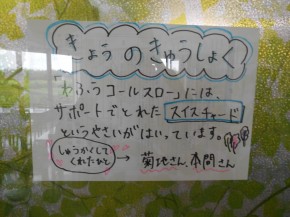 きょうのきゅうしょく
「わふうコールスロー」には、
サポートでとれた スイスチャード
というやさいがはいっています。
しゅうかくして
くれたひと
→ 菊地さん、本間さん